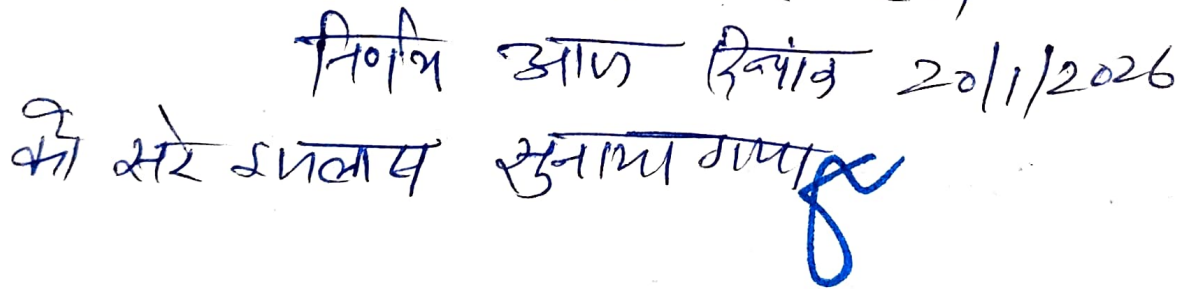 निर्णय आज दिनांक 20/1/2026
को सरे इजलास सुनाया गया